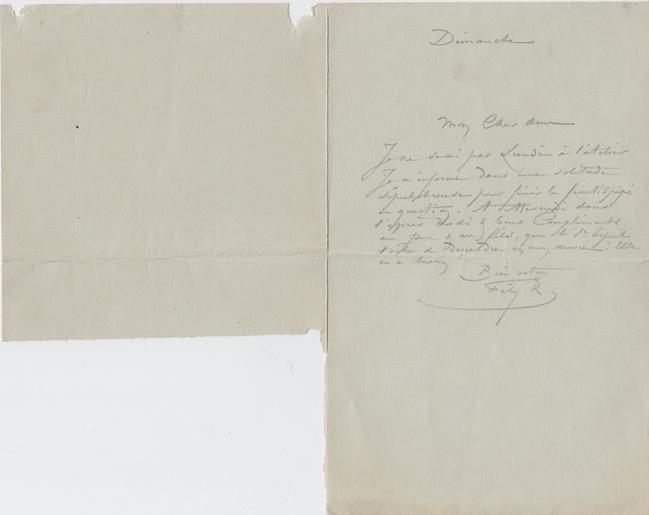 Dimanche
Mon Cher Ami
Je ne serai pas Lundi à l'atelier.
Je m'enferme dans une solitude
sépulchreuse pour finir le frontispice
en question. A Mercredi dans
l'après Midi & bons Compliments
au père & au fils, que le St Esprit
de Descendre en mon œuvre! Elle
en a besoin
Bien votre
Fély R